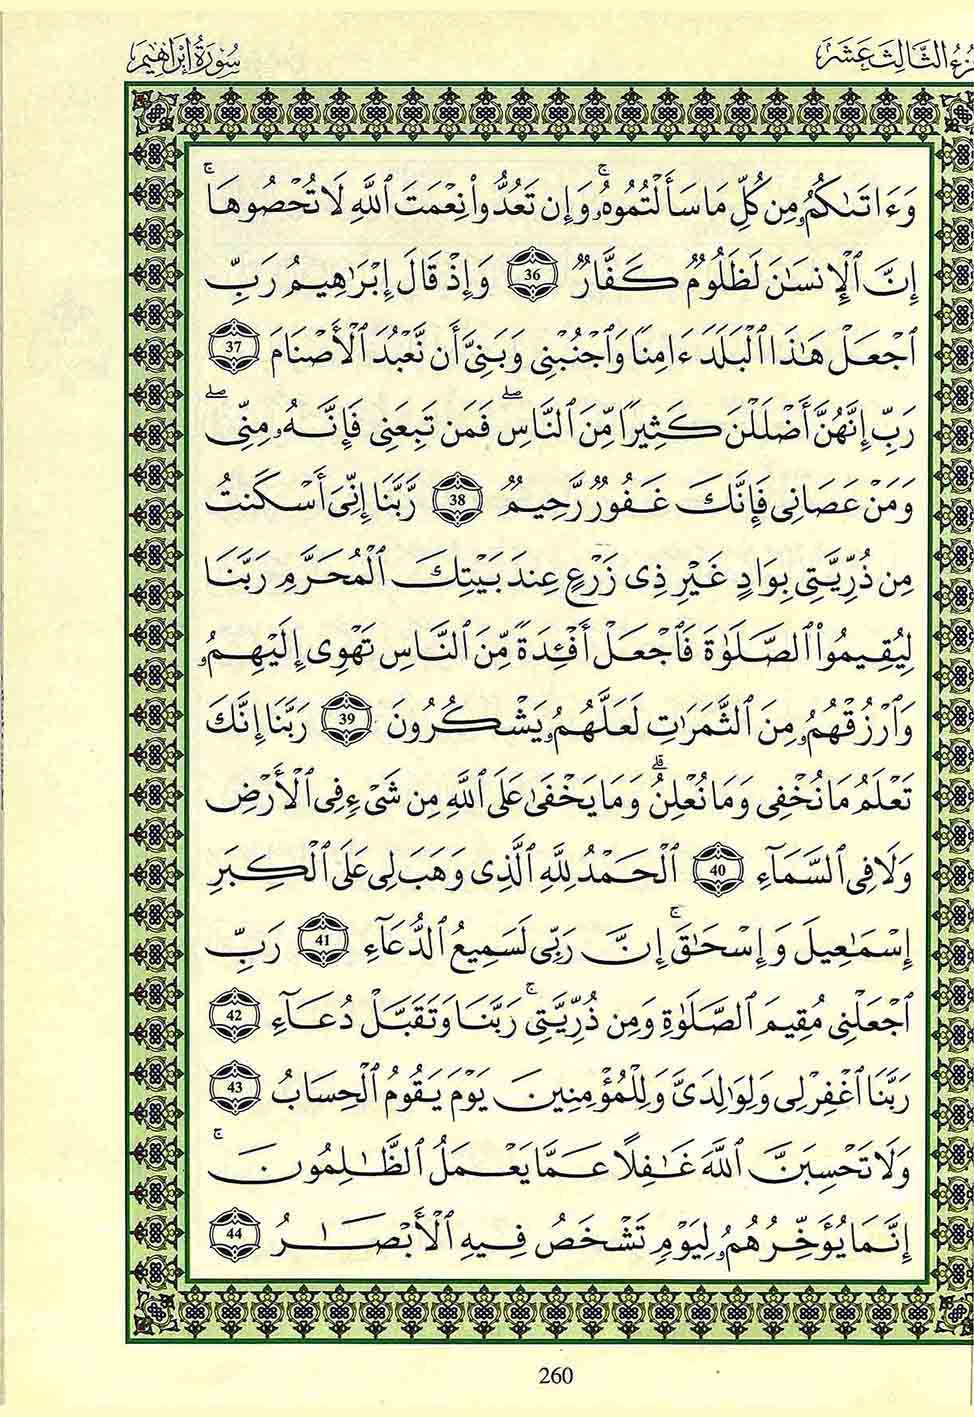 سُورَةُ إِبْرَاهِيمَ
الثَّالِثَ عَشَرَ
وَءَاتَىٰكُمُۥ مِن كُلِّ مَا سَأَلْتُمُوهُۚۥ وَإِن تَعُدُّوا۟ نِعْمَتَ ٱللَّهِ لَا تُحْصُوهَاۚ
إِنَّ ٱلْإِنسَٰنَ لَظَلُومٌ كَفَّارٌ 36 وَإِذْ قَالَ إِبْرَٰهِيمُ رَبِّ
ٱجْعَلْ هَٰذَا ٱلْبَلَدَ ءَامِنًا وَٱجْنُبْنِى وَبَنِىَّ أَن نَّعْبُدَ ٱلْأَصْنَامَ 37
رَبِّ إِنَّهُنَّ أَضْلَلْنَ كَثِيرًا مِّنَ ٱلنَّاسِۖ فَمَن تَبِعَنِى فَإِنَّهُۥ مِنِّىۖ
وَمَنْ عَصَانِى فَإِنَّكَ غَفُورٌ رَّحِيمٌ 38 رَّبَّنَا إِنِّىَ أَسْكَنتُ
مِن ذُرِّيَّتِى بِوَادٍ غَيْرِ ذِى زَرْعٍ عِندَ بَيْتِكَ ٱلْمُحَرَّمِ رَبَّنَا
لِيُقِيمُوا۟ ٱلصَّلَوٰةَ فَٱجْعَلْ أَفْـِٔدَةً مِّنَ ٱلنَّاسِ تَهْوِى إِلَيْهِمُۥ
وَٱرْزُقْهُمُۥ مِنَ ٱلثَّمَرَٰتِ لَعَلَّهُمُۥ يَشْكُرُونَ 39 رَبَّنَا إِنَّكَ
تَعْلَمُ مَا نُخْفِى وَمَا نُعْلِنُۗ وَمَا يَخْفَىٰ عَلَى ٱللَّهِ مِن شَىْءٍ فِى ٱلْأَرْضِ
وَلَا فِى ٱلسَّمَآءِ 40 ٱلْحَمْدُ لِلَّهِ ٱلَّذِى وَهَبَ لِى عَلَى ٱلْكِبَرِ
إِسْمَٰعِيلَ وَإِسْحَٰقَۚ إِنَّ رَبِّى لَسَمِيعُ ٱلدُّعَآءِ 41 رَبِّ
ٱجْعَلْنِى مُقِيمَ ٱلصَّلَوٰةِ وَمِن ذُرِّيَّتِىۚ رَبَّنَا وَتَقَبَّلْ دُعَآءِ 42
رَبَّنَا ٱغْفِرْ لِى وَلِوَٰلِدَىَّ وَلِلْمُؤْمِنِينَ يَوْمَ يَقُومُ ٱلْحِسَابُ 43
وَلَا تَحْسِبَنَّ ٱللَّهَ غَٰفِلًا عَمَّا يَعْمَلُ ٱلظَّٰلِمُونَۚ
إِنَّمَا يُؤَخِّرُهُمُۥ لِيَوْمٍ تَشْخَصُ فِيهِ ٱلْأَبْصَٰرُ 44
260